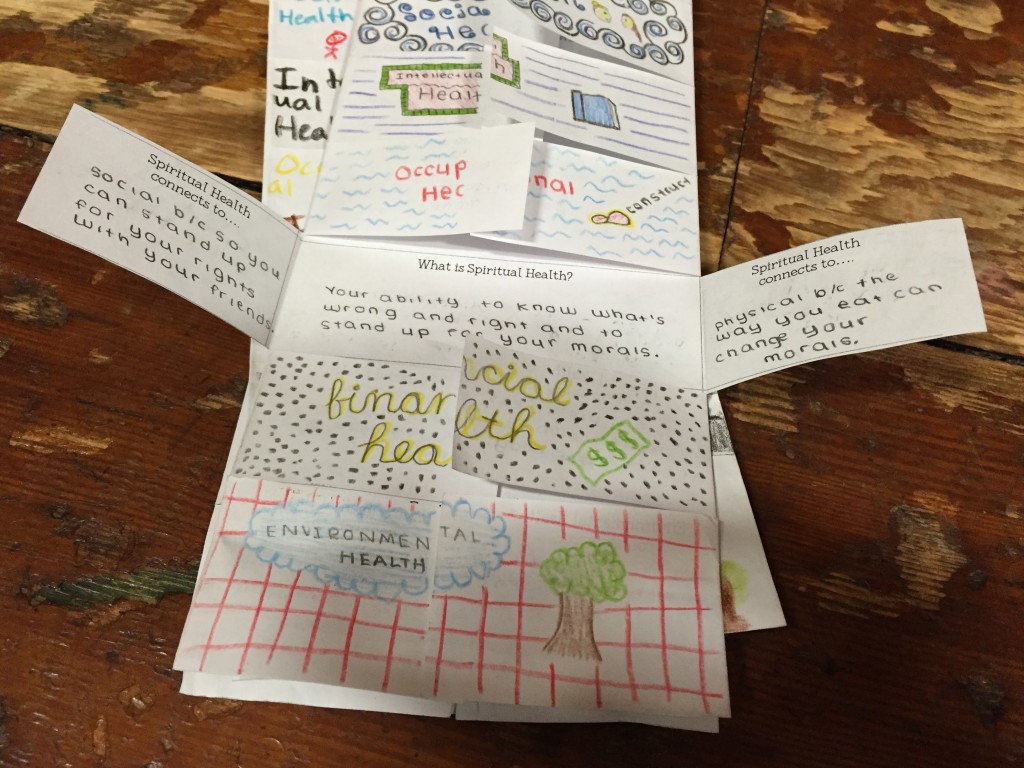 Health
Social
Hea
Int
ual
Hea
Intellectua
Healt
h
Occ
al
Occup
Hec
nal
construct
Spiritual Health
connects to....
social b/c so you
can stand up
for your rights
with your
your friends.
What is Spiritual Health?
Your ability to know what's
wrong and right and to
stand up for your morals.
Spiritual Health
connects to....
physical b/c the
way you eat can
change your
morals.
finan
cial
hea
lth
$$$
ENVIRONMENTAL
HEALTH